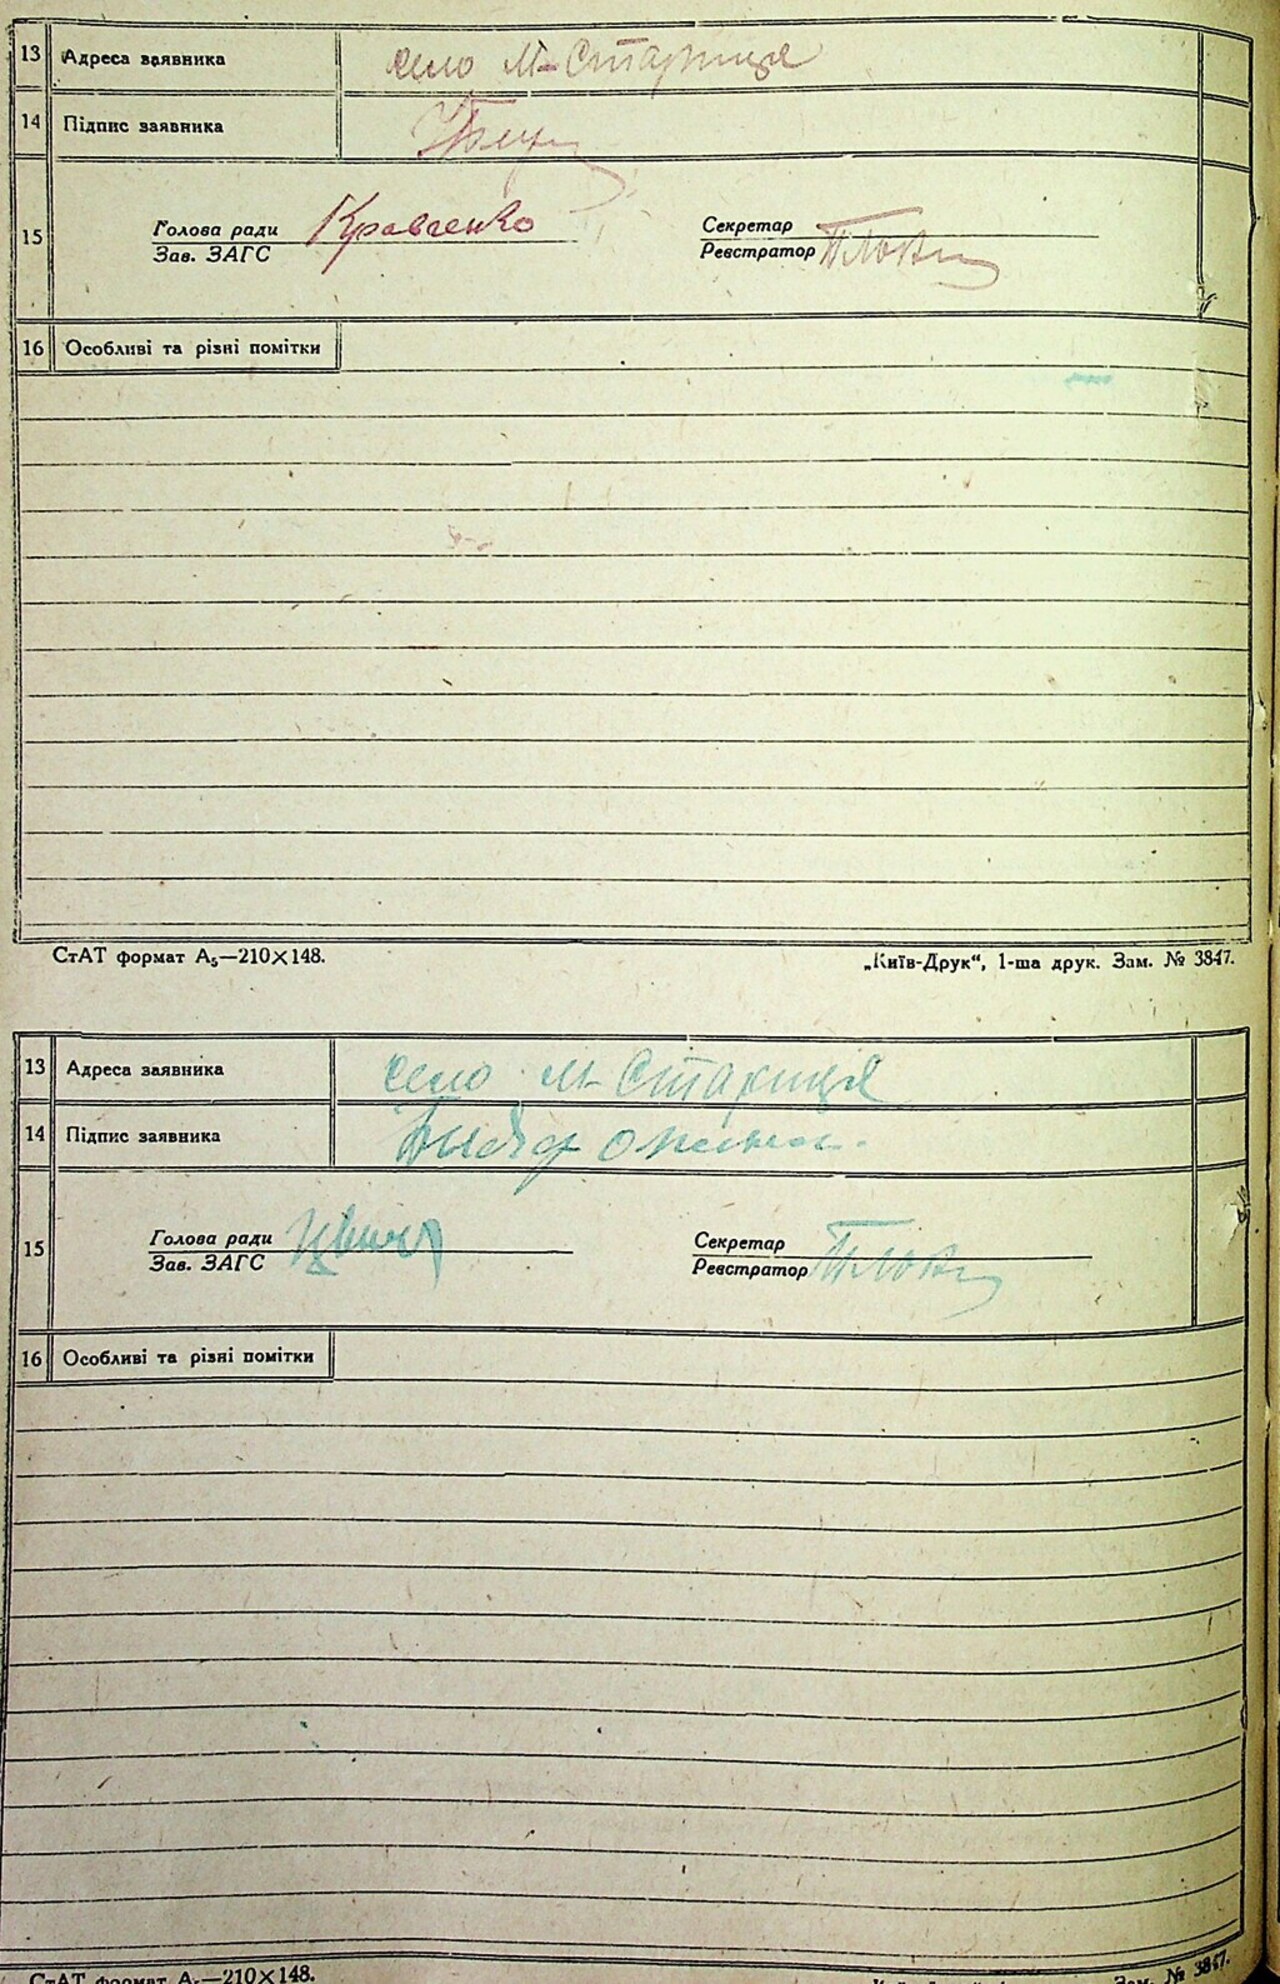 13 Адреса заявника село М-Стариця
14 Підпис заявника
15 Голова ради Кравченко Секретар
Зав. ЗАГС Реєстратор
16 Особливі та різні помітки
СтАТ формат А₅—210×148. „Київ-Друк“, 1-ша друк. Зам. № 3847.
13 Адреса заявника село М-Стариця
14 Підпис заявника
15 Голова ради Секретар
Зав. ЗАГС Реєстратор
16 Особливі та різні помітки
СтАТ формат А₅—210×148. Зам. № 3847.